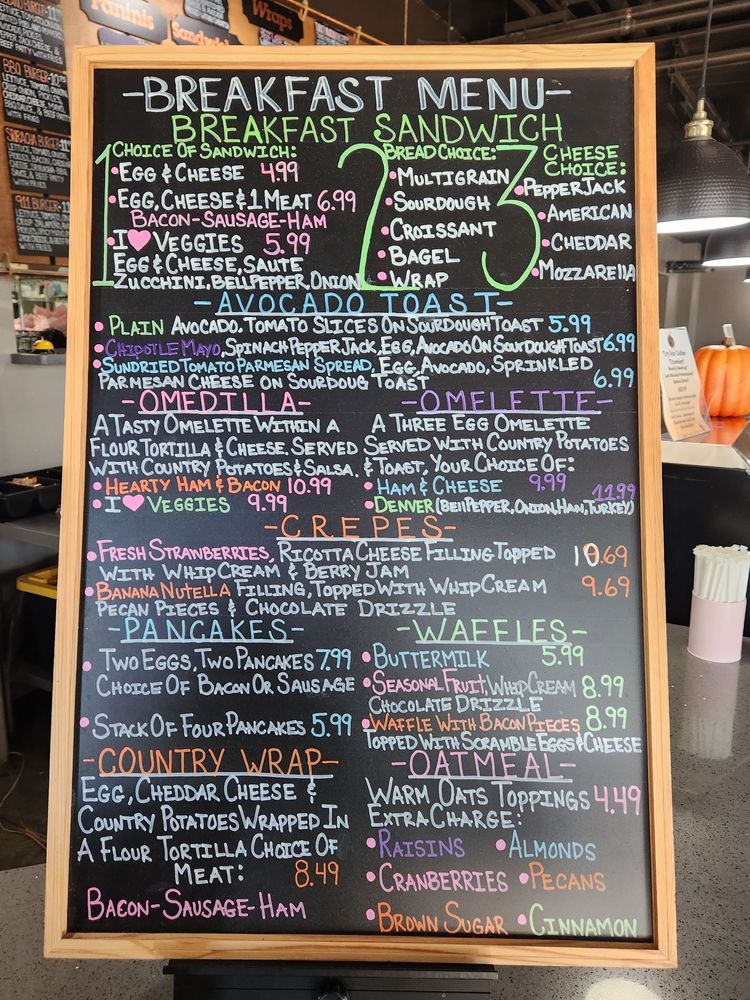 Paninis
Sandwich
Wraps
BBQ BURGER
SRIRACHA BURGER
911 BURGER
-BREAKFAST MENU-
BREAKFAST SANDWICH
1 CHOICE OF SANDWICH:
• EGG & CHEESE 4.99
• EGG, CHEESE & 1 MEAT 6.99
BACON-SAUSAGE-HAM
• I ♥ VEGGIES 5.99
EGG & CHEESE, SAUTE
ZUCCHINI, BELLPEPPER, ONION
2 BREAD CHOICE:
• MULTIGRAIN
• SOURDOUGH
• CROISSANT
• BAGEL
• WRAP
3 CHEESE
CHOICE:
• PEPPER JACK
• AMERICAN
• CHEDDAR
• MOZZARELLA
-AVOCADO TOAST-
• PLAIN AVOCADO, TOMATO SLICES ON SOURDOUGH TOAST 5.99
• CHIPOTLE MAYO, SPINACH PEPPER JACK, EGG, AVOCADO ON SOURDOUGH TOAST 6.99
• SUNDRIED TOMATO PARMESAN SPREAD, EGG, AVOCADO, SPRINKLED
PARMESAN CHEESE ON SOURDOUG TOAST 6.99
-OMEDILLA-
A TASTY OMELETTE WITHIN A
FLOUR TORTILLA & CHEESE. SERVED
WITH COUNTRY POTATOES & SALSA.
• HEARTY HAM & BACON 10.99
• I ♥ VEGGIES 9.99
-OMELETTE-
A THREE EGG OMELETTE
SERVED WITH COUNTRY POTATOES
& TOAST, YOUR CHOICE OF:
• HAM & CHEESE 9.99
• DENVER (BELLPEPPER, ONION, HAM, TURKEY) 11.99
-CREPES-
• FRESH STRAWBERRIES, RICOTTA CHEESE FILLING TOPPED 10.69
WITH WHIP CREAM & BERRY JAM
• BANANA NUTELLA FILLING, TOPPED WITH WHIP CREAM 9.69
PECAN PIECES & CHOCOLATE DRIZZLE
-PANCAKES-
• TWO EGGS, TWO PANCAKES 7.99
CHOICE OF BACON OR SAUSAGE
• STACK OF FOUR PANCAKES 5.99
-WAFFLES-
• BUTTERMILK 5.99
• SEASONAL FRUIT, WHIP CREAM 8.99
CHOCOLATE DRIZZLE
• WAFFLE WITH BACON PIECES 8.99
TOPPED WITH SCRAMBLE EGGS & CHEESE
-COUNTRY WRAP-
EGG, CHEDDAR CHEESE &
COUNTRY POTATOES WRAPPED IN
A FLOUR TORTILLA CHOICE OF
MEAT: 8.49
BACON-SAUSAGE-HAM
-OATMEAL-
WARM OATS TOPPINGS 4.49
EXTRA CHARGE:
• RAISINS • ALMONDS
• CRANBERRIES • PECANS
• BROWN SUGAR • CINNAMON